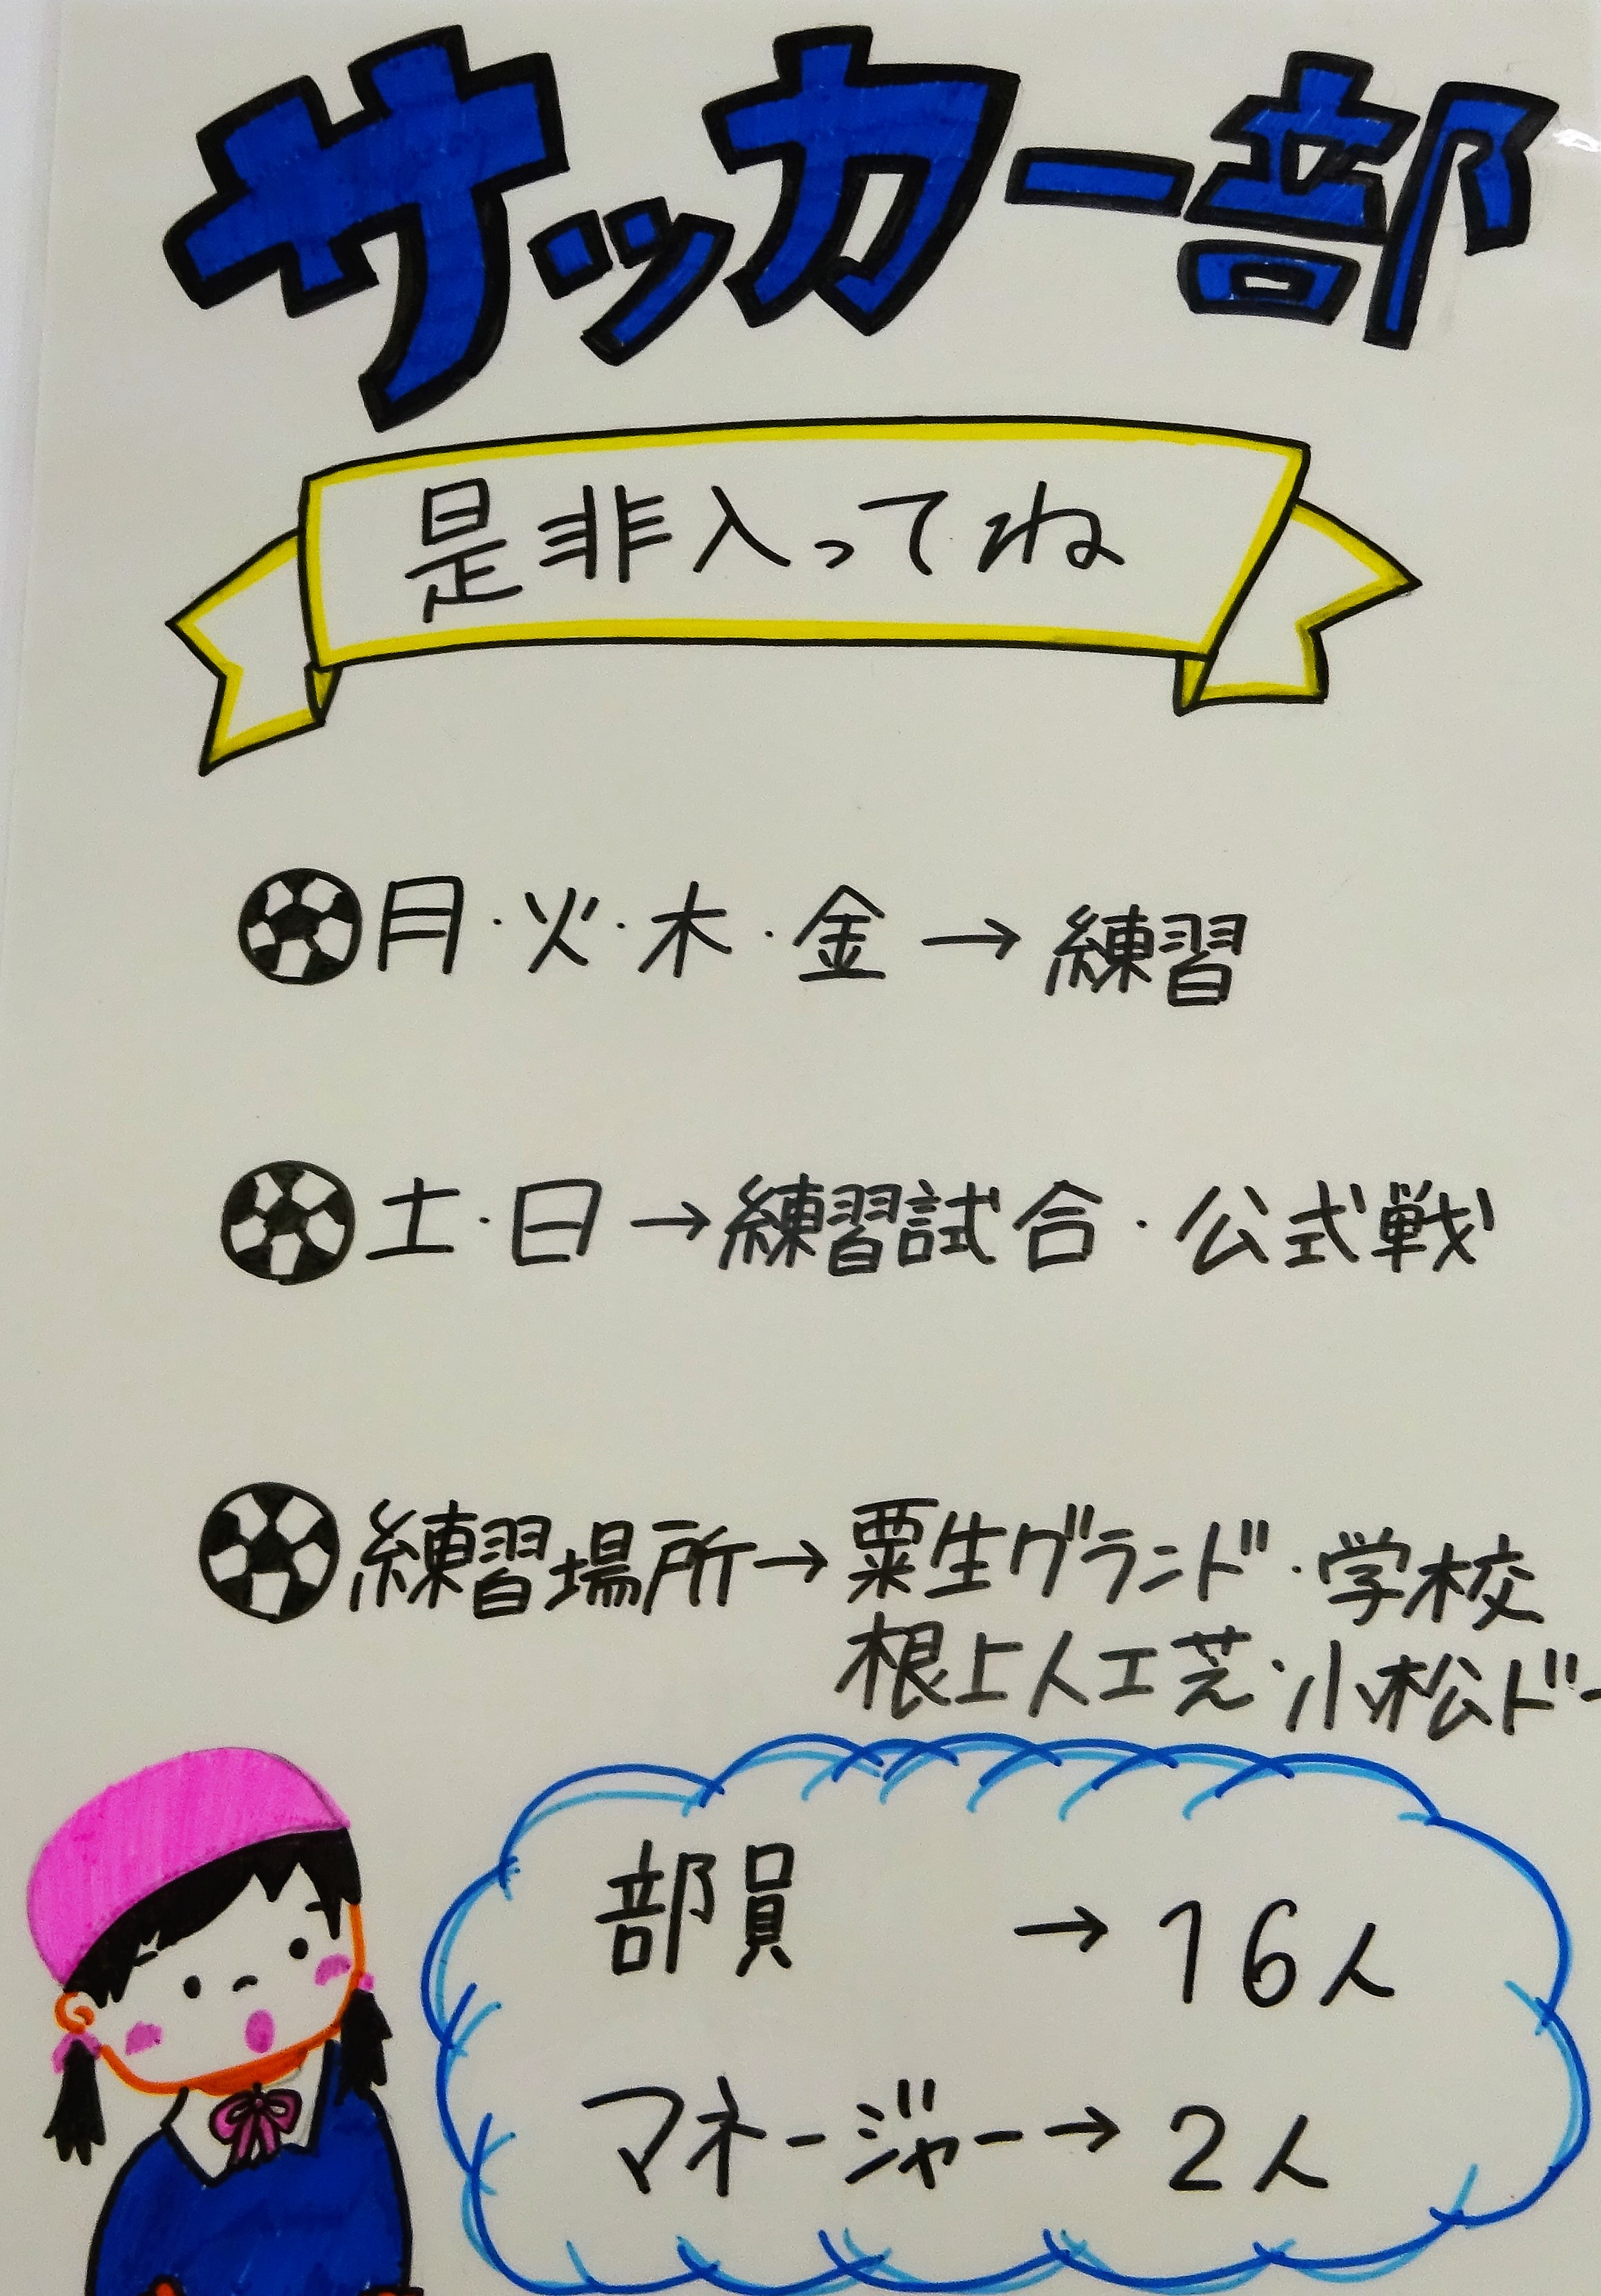 サッカー部
是非入ってね
月・火・木・金→練習
土・日→練習試合・公式戦
練習場所→粟生グランド・学校
根上人工芝・小松ドー
部員→16人
マネージャー→2人